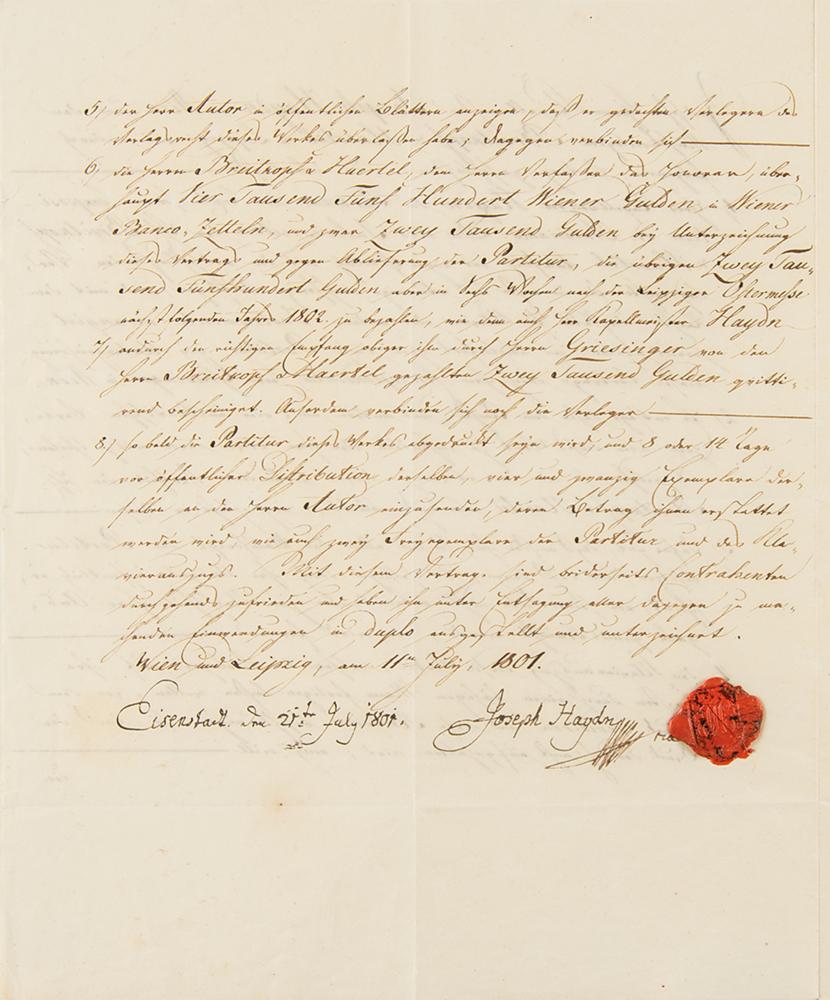 5) der Herr Autor in öffentlichen Blättern anzeigen, daß er gedachten Verlegern das
Verlagsrecht dieses Werkes überlaßen habe; dagegen verbinden sich
6) die Herrn Breitkopf & Haertel, dem Herrn Verfasser das Honorar, über-
haupt Vier Tausend Fünf Hundert Wiener Gulden, in Wiener
Banco-Zetteln, und zwar Zwey Tausend Gulden bey Unterzeichnung
dieses Vertrags und gegen Ablieferung der Partitur, die übrigen Zwey Tau-
send Fünfhundert Gulden aber in Sechs Wochen nach der Leipziger Ostermesse
nächstfolgenden Jahres 1802. zu bezahlen, wie denn auch Herr Kapellmeister Haydn
7) andurch den richtigen Empfang obiger ihm durch Herrn Griesinger von den
Herrn Breitkopf & Haertel gezahlten Zwey Tausend Gulden quitti-
rend bescheiniget. Außerdem verbinden sich noch die Verleger
8) so bald die Partitur dieses Werkes abgedruckt seyn wird, und 8 oder 14 Tage
vor öffentlicher Distribution derselben, vier und zwanzig Exemplare der-
selben an den Herrn Autor einzusenden, deren Betrag ihnen erstattet
werden wird, wie auch zwey Freyexemplare der Partitur und des Kla-
vierauszugs. Mit diesem Vertrag sind beiderseits Contrahenten
durchgehends zufrieden und haben ihn unter Entsagung aller dagegen zu ma-
chenden Einwendungen in duplo ausgestellt und unterzeichnet.
Wien und Leipzig, am 11ten July, 1801.
Eisenstadt den 21ten July 1801. Joseph Haydn mpria